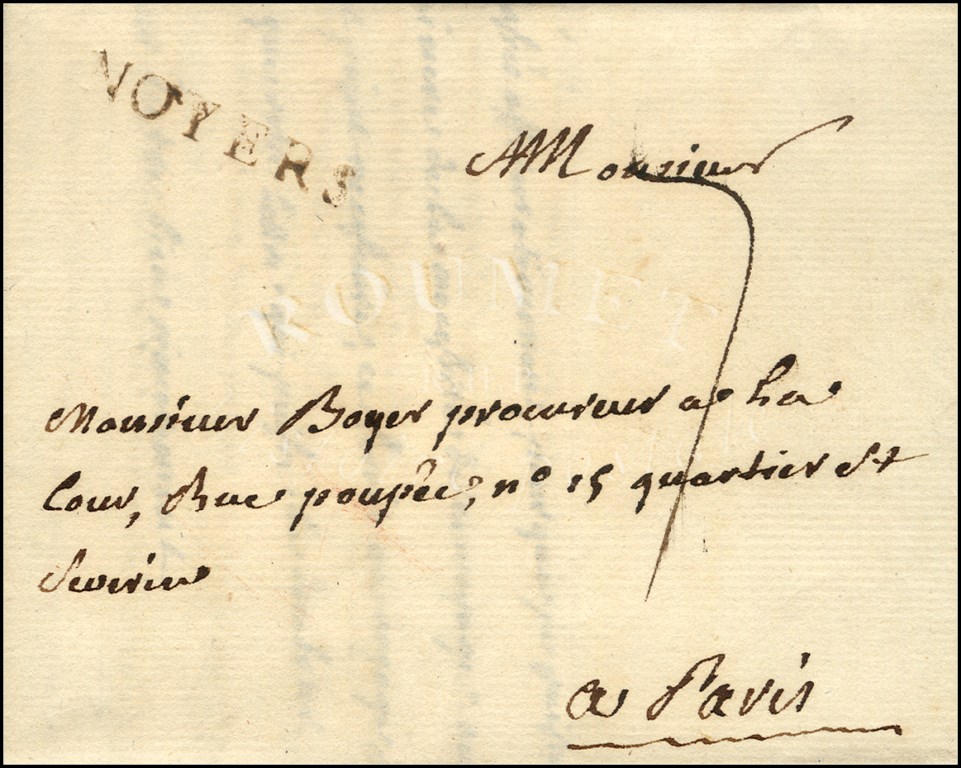 NOYERS
Monsieur
7
ROUMET
Monsieur Boyer procureur a La
Cour, Rue poupée, n° 15 quartier St
Severin
a Paris